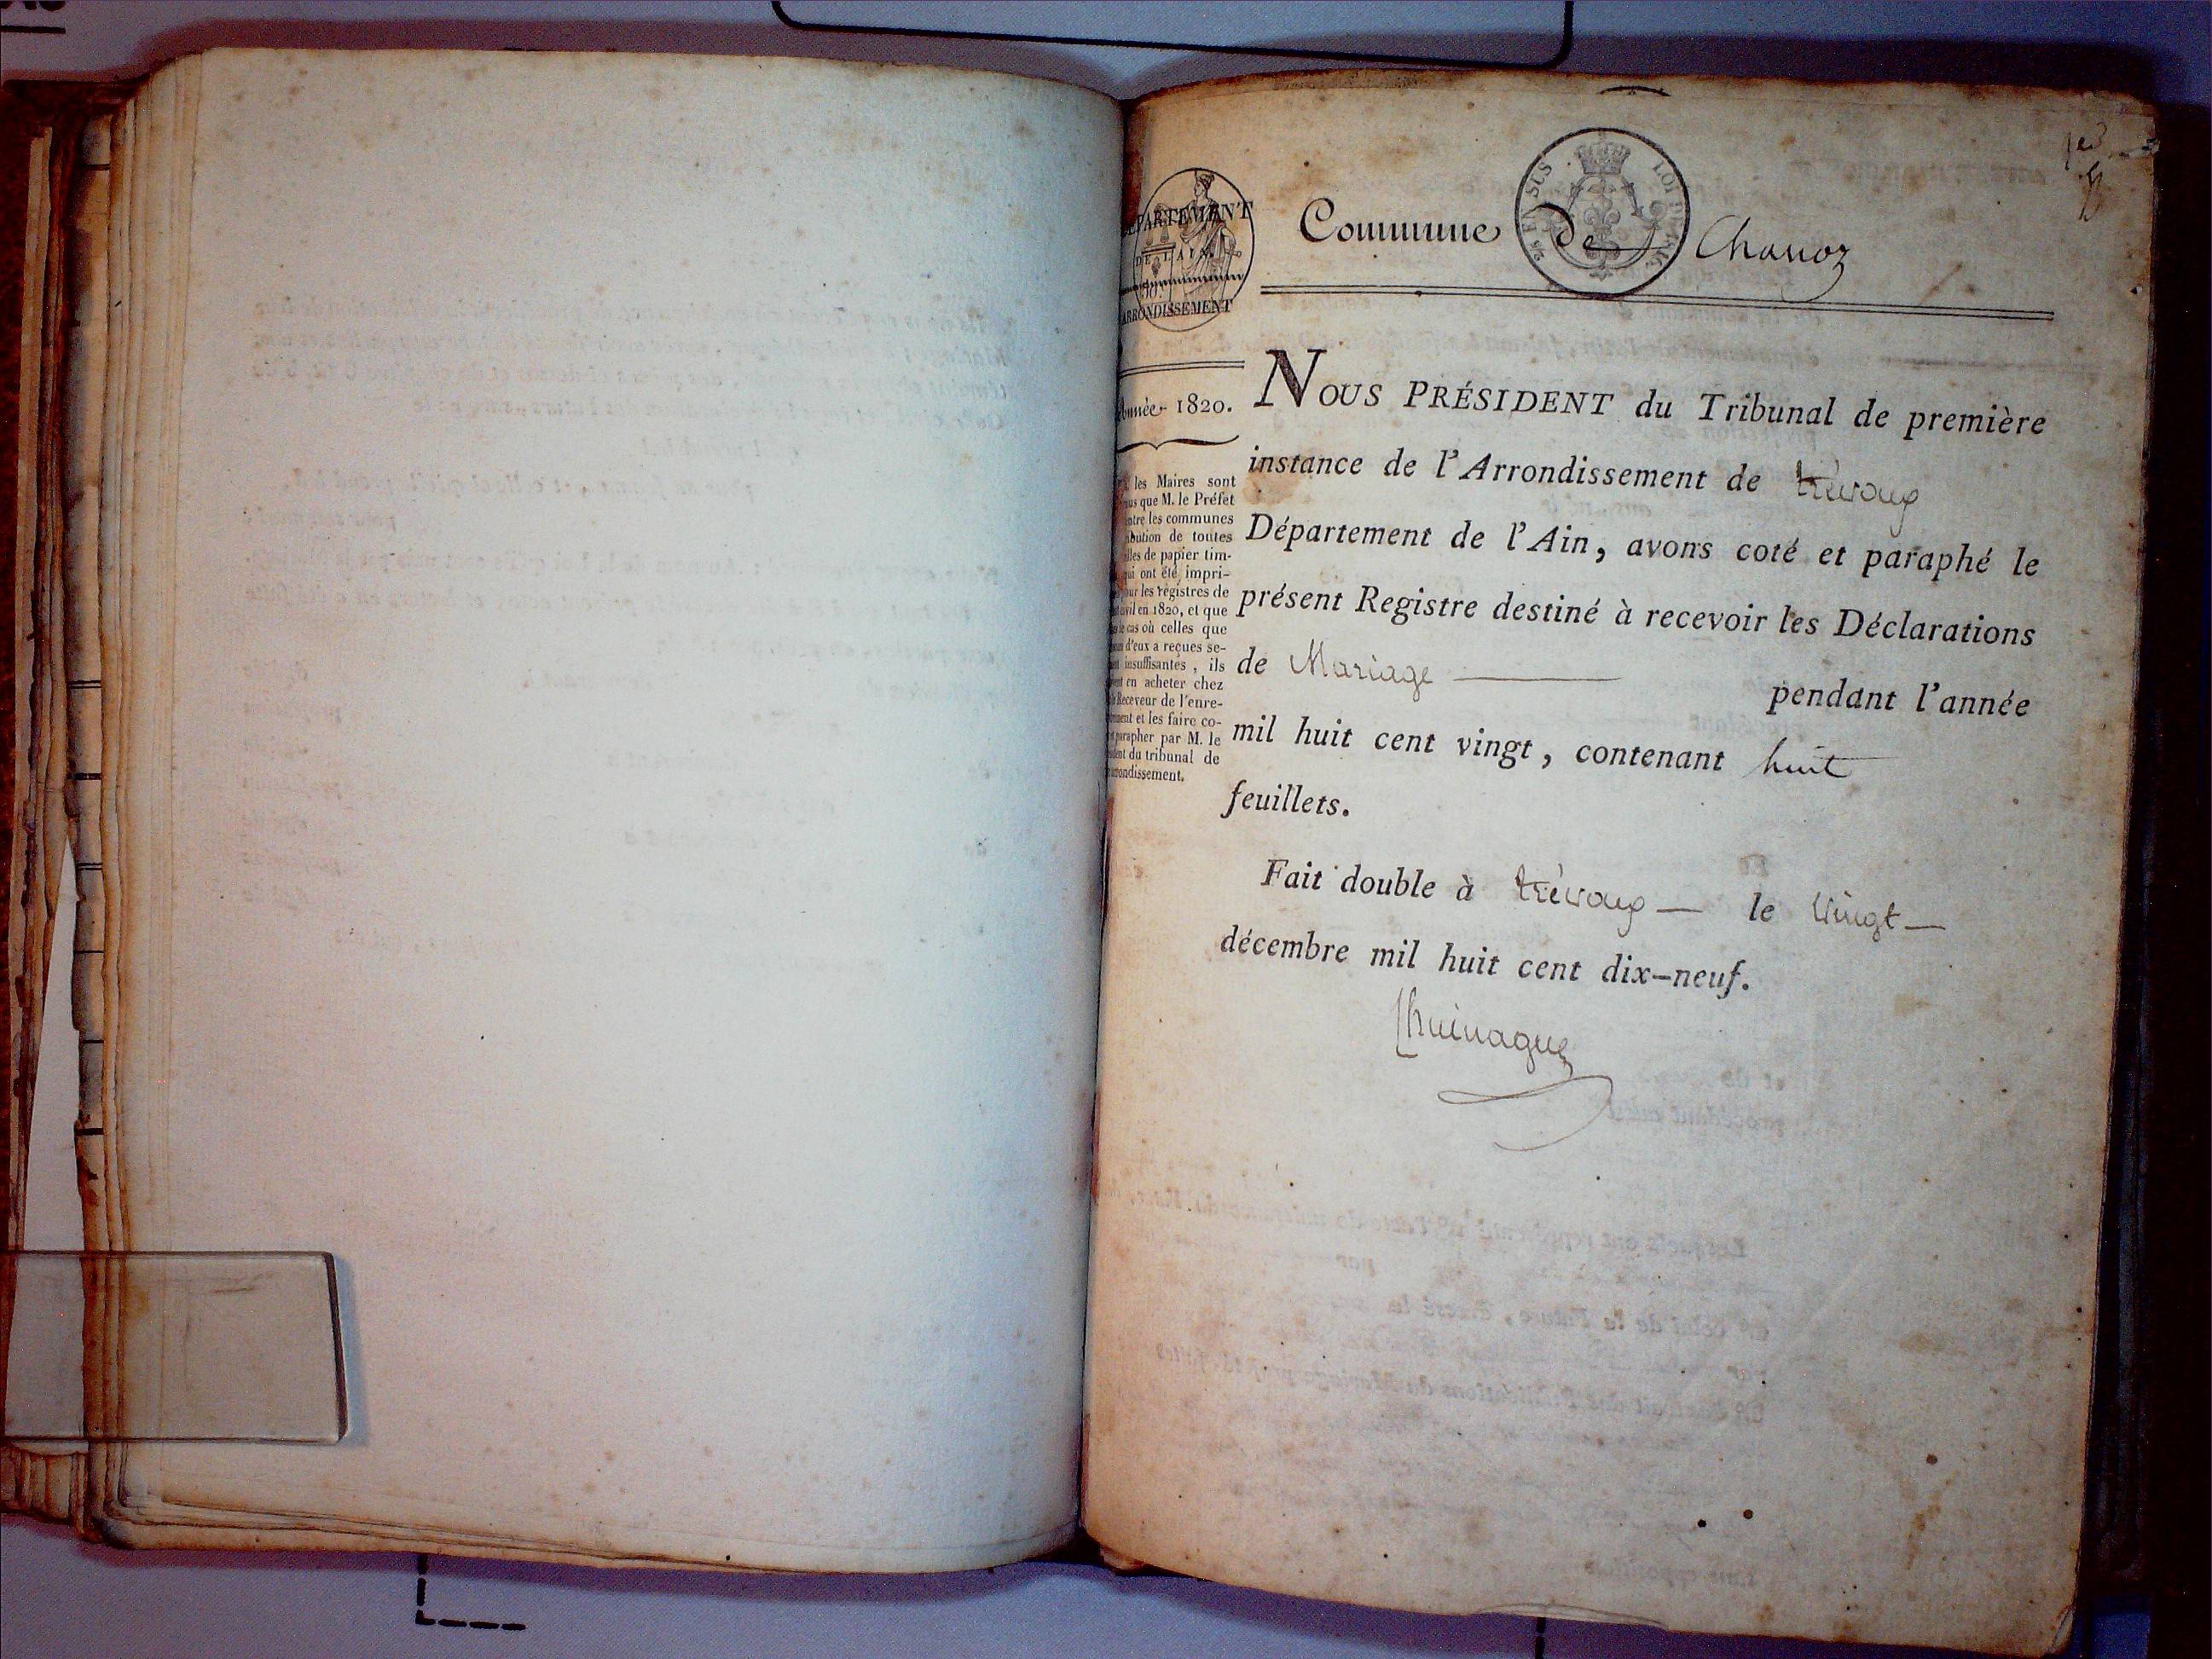 DÉPARTEMENT
DE L'AIN.
ARRONDISSEMENT
Commune de Chanoz
Année 1820.
les Maires sont
que M. le Préfet
entre les communes
de toutes
de papier tim-
qui ont été impri-
pour les régistres de
civil en 1820, et que
le cas où celles que
d'eux a reçues se-
insuffisantes, ils
en acheter chez
Receveur de l'enre-
et les faire co-
parapher par M. le
du tribunal de
arrondissement.
NOUS PRÉSIDENT du Tribunal de première
instance de l'Arrondissement de trévoux
Département de l'Ain, avons coté et paraphé le
présent Registre destiné à recevoir les Déclarations
de Mariage pendant l'année
mil huit cent vingt, contenant huit
feuillets.
Fait double à trévoux — le Vingt —
décembre mil huit cent dix-neuf.